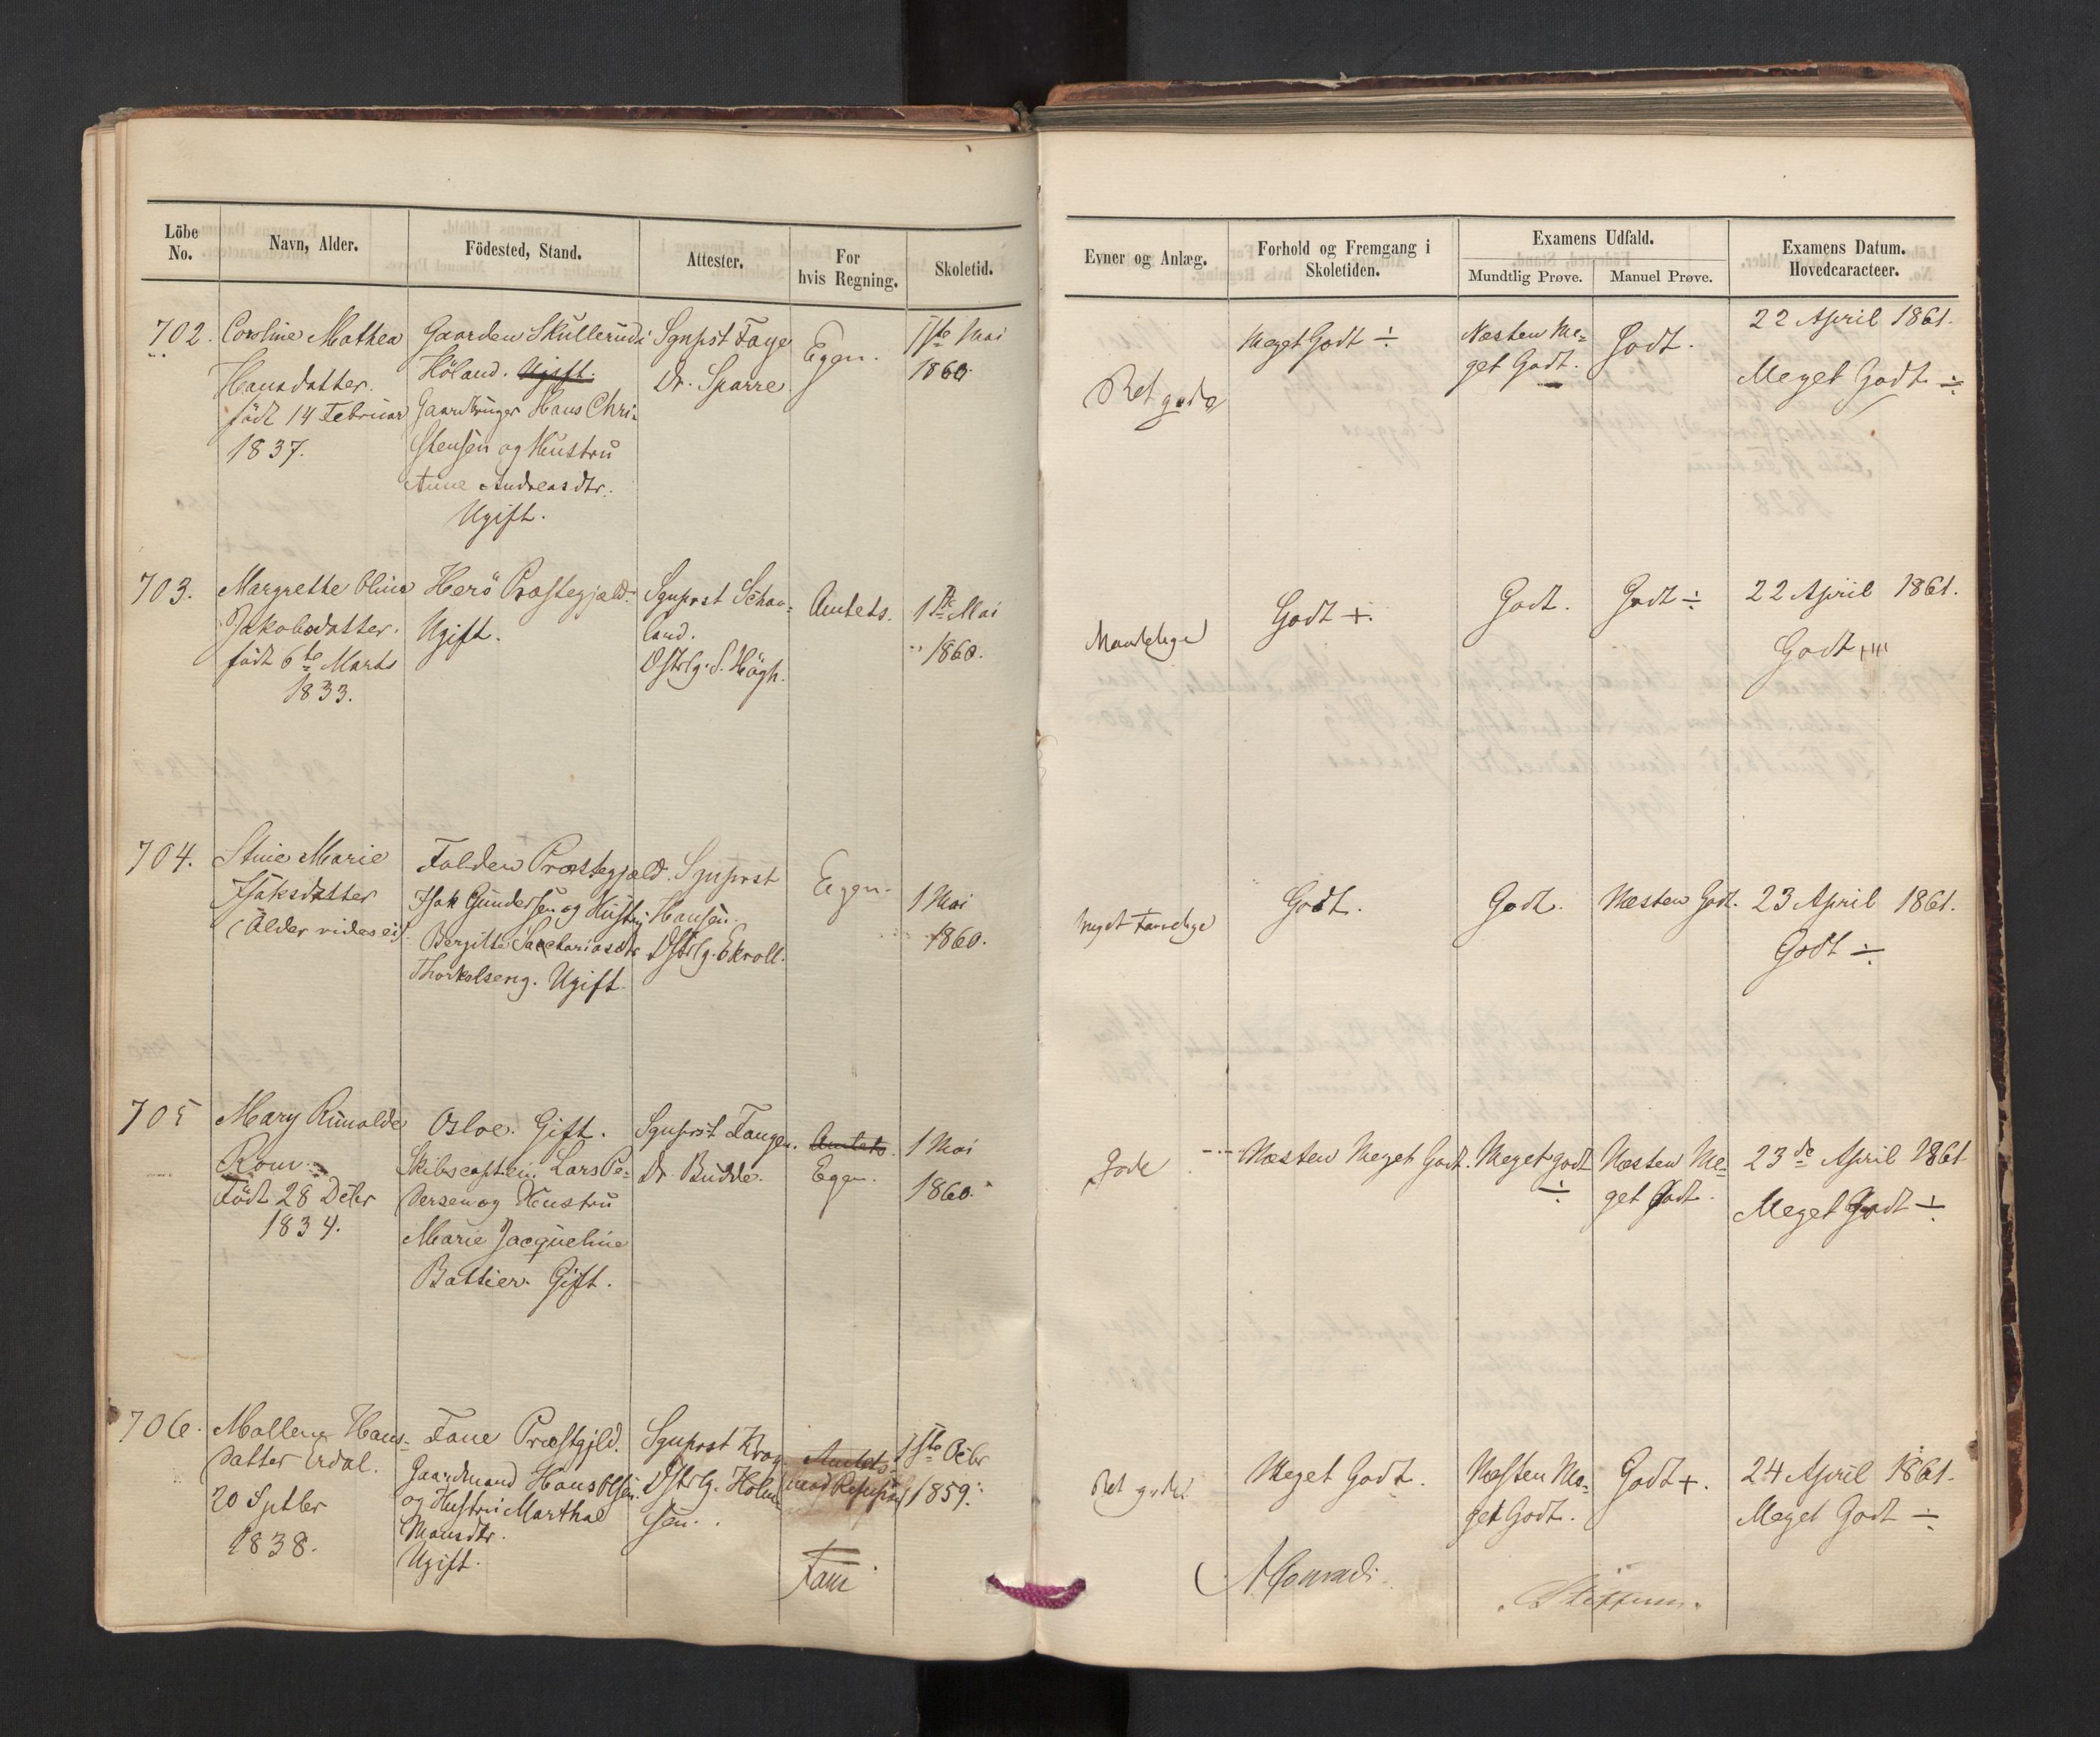 Löbe No.
Navn, Alder.
Födested, Stand.
Attester.
For hvis Regning.
Skoletid.
Evner og Anlæg.
Forhold og Fremgang i Skoletiden.
Examens Udfald.
Mundtlig Prøve.
Manuel Prøve.
Examens Datum.
Hovedcaracteer.
702.
Caroline Mathea
Hansdatter.
födt 14 Februar
1837.
Gaarden Skullerud i
Höland. Ugift.
Gaardbruger Hans Chri-
stensen og Hustru
Anne Andreasdtr.
Ugift.
Sgnpst Faye
Dr. Sparre
Egen.
1ste Mai
1860
Ret gode
Meget Godt ÷
Næsten Me-
get Godt.
Godt.
22 April 1861.
Meget Godt ÷
703.
Margrethe Olina
Jakobsdatter.
födt 6te Marts
1833.
Herö Præstegjæld.
Ugift.
Sgnprst Schau-
land.
Dstrlg. S. Högh.
Amtets.
1ste Mai
1860.
Maadelige
Godt +.
Godt.
Godt ÷
22 April 1861.
Godt
704.
Stine Marie
Isaksdatter
(Alder vides ei)
Folden Præstegjæld.
Isak Gundersen og Hustru
Bergitte Sacchariasdtr
Thorkelseng. Ugift.
Sgnprst
Hansen.
Dstrlg. Ekroll.
Egen.
1 Mai
1860.
meget Tarvelige
Godt.
Godt.
Næsten Godt.
23 April 1861.
Godt ÷
705
Mary Rinolde
Rom
Födt 28 Decbr
1834.
Osloe. Gift.
Skibscaptein Lars Pe-
dersen og Hustru
Marie Jacqueline
Battier. Gift.
Sgnprst Fangen.
Dr Budde.
Amtets.
Egen.
1 Mai
1860.
Gode
Næsten Meget Godt.
Meget godt
÷
Næsten Me-
get Godt.
23de April 1861
Meget Godt ÷
706.
Mallene Hans-
datter Erdal.
20 Sptbr
1838.
Fane Præstgjld.
Gaardmand Hans Olsen
og Hustru Marthae
Monsdtr.
Ugift.
Sgnprst Krog.
Dstrlg. Holm-
sen.
Amtets
mod Refusion
Fane
1ste Octbr
1859.
Ret gode
Meget Godt.
Næsten Me-
get Godt.
Godt +.
24 April 1861.
Meget Godt ÷
Monrad.